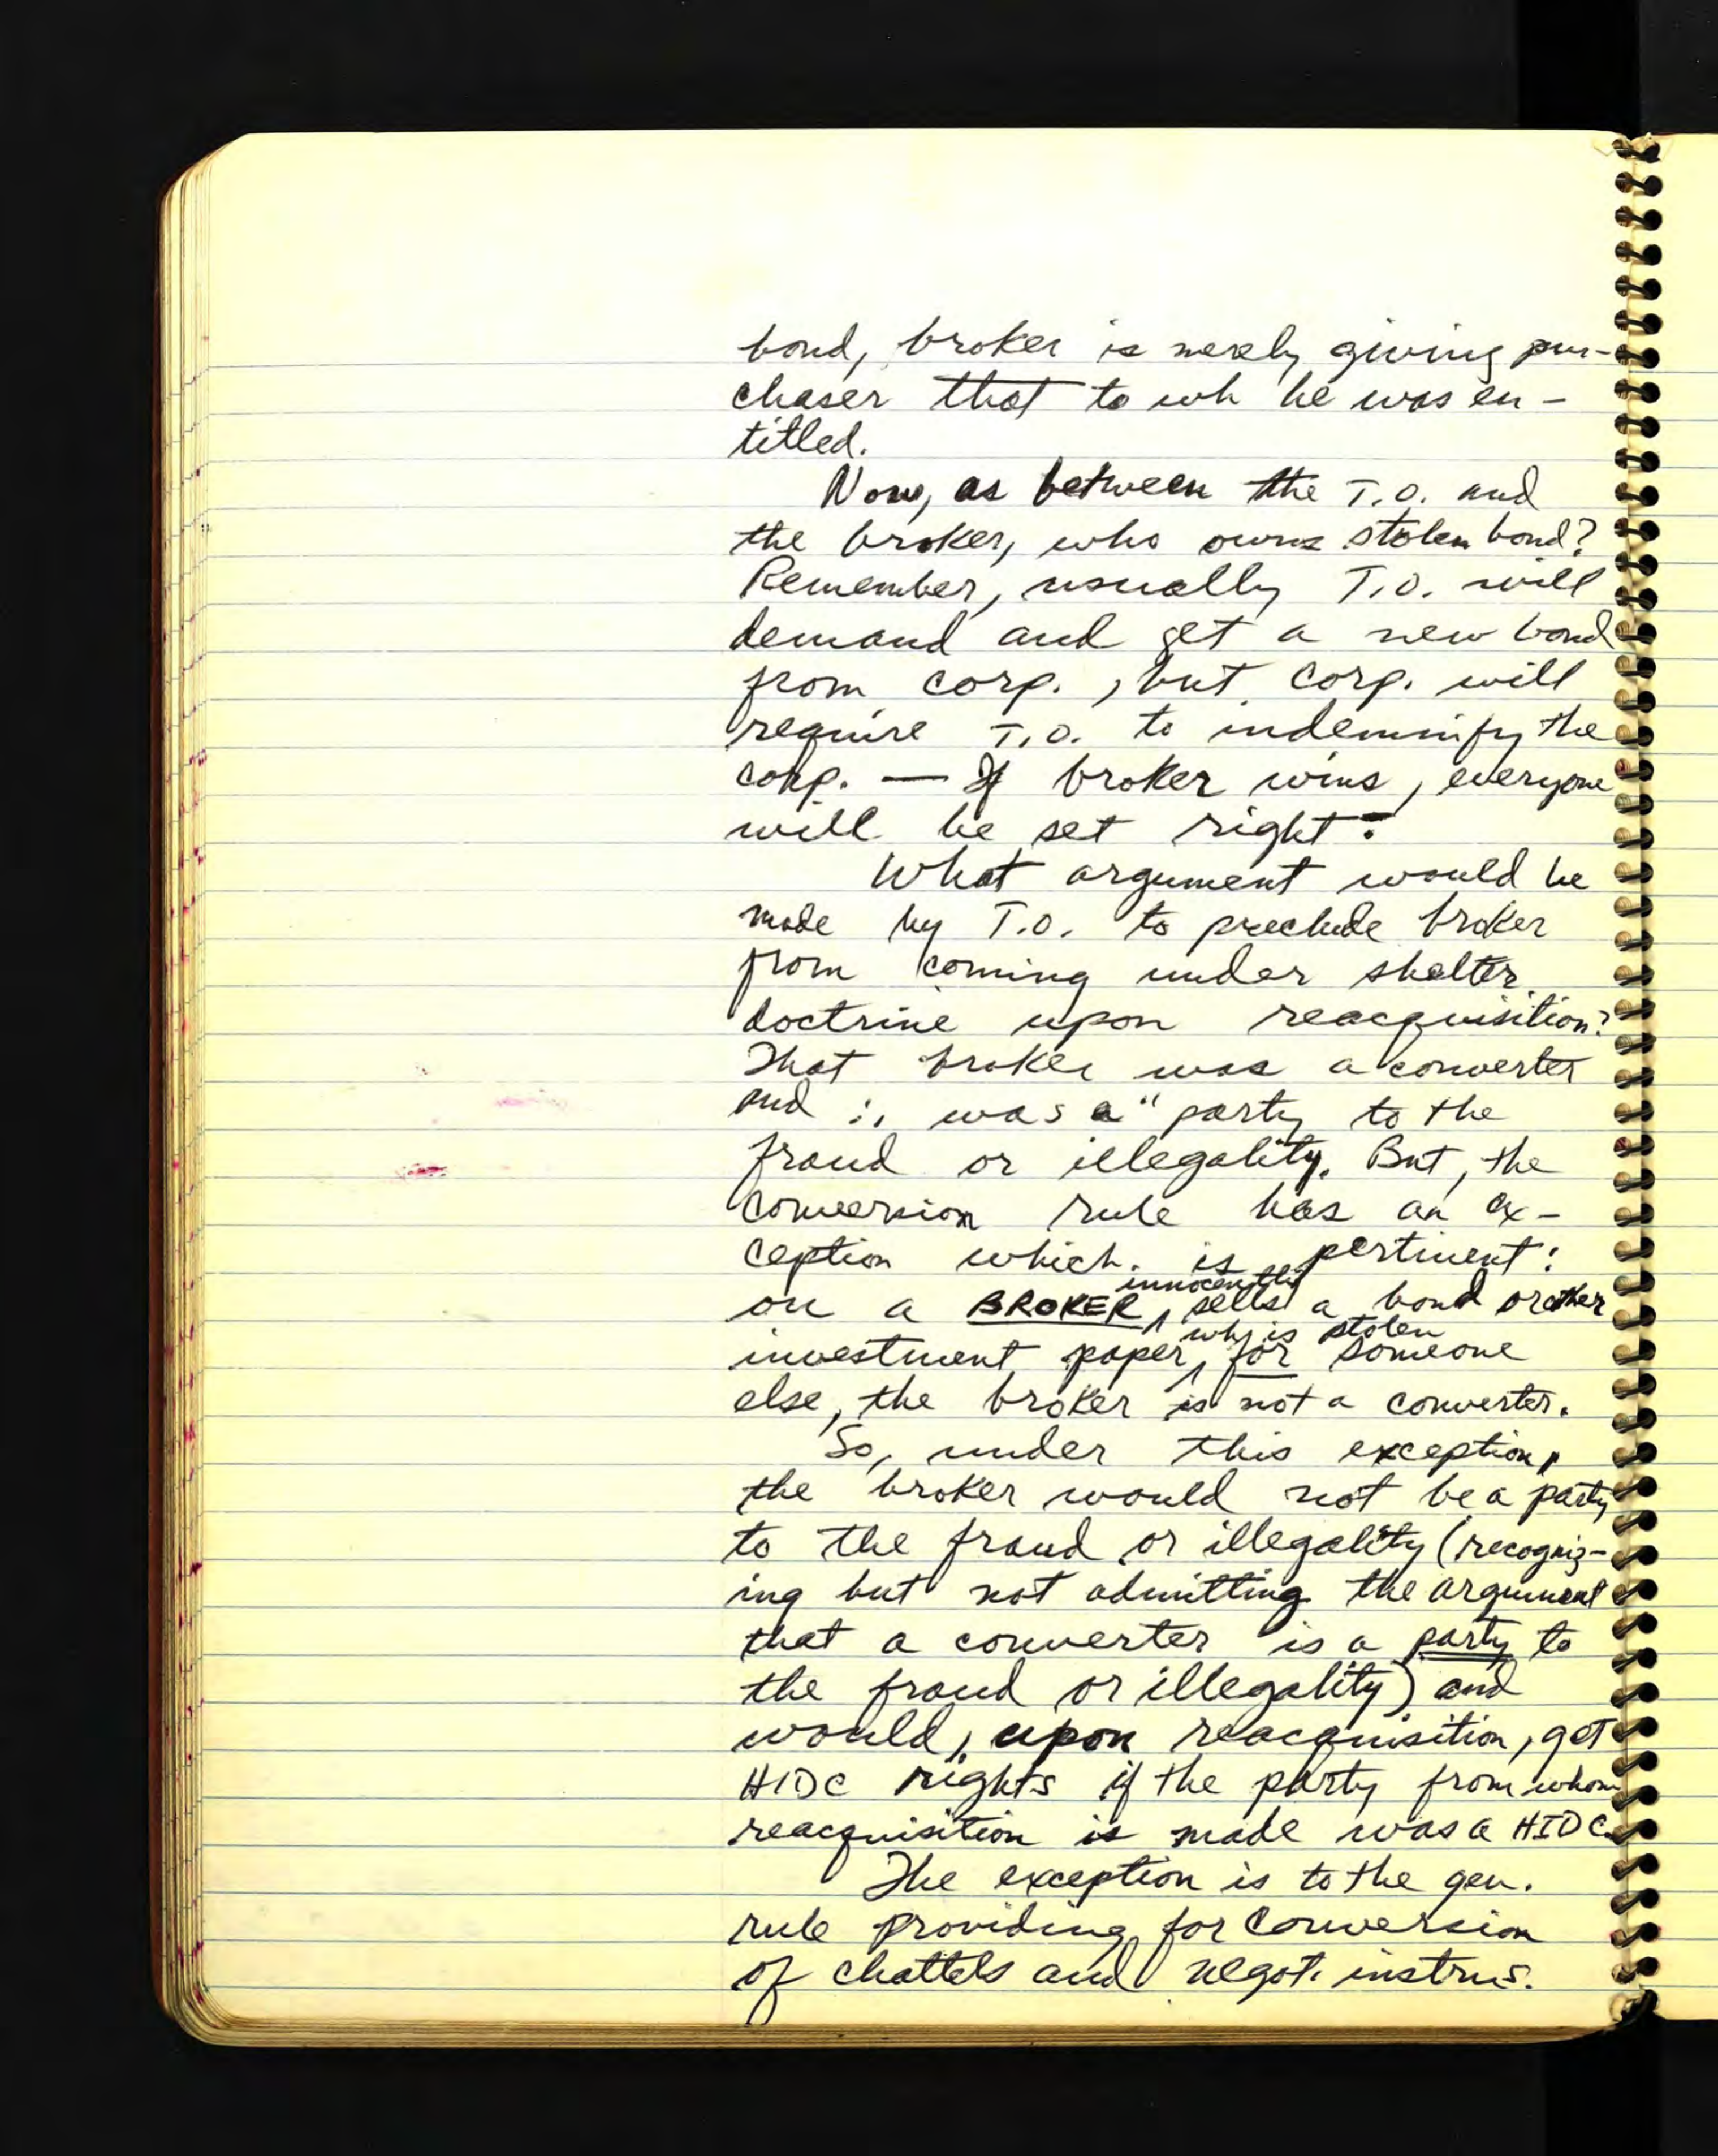 bond, broker is merely giving pur-
chaser that to wh he was en-
titled.
Now, as between the T.O. and
the broker, who owns stolen bond?
Remember, usually T.O. will
demand and get a new bond
from corp., but corp. will
require T.O. to indemnify the
corp. — If broker wins, everyone
will be set right.
What argument would be
made by T.O. to preclude broker
from coming under shelter
doctrine upon reacquisition?
That broker was a converter
and ∴ was a "party to the
fraud or illegality. But, the
conversion rule has an ex-
ception which is pertinent:
innocently
on a BROKER, sells a bond or other
wh is stolen
investment paper, for someone
else, the broker is not a converter.
So, under this exception,
the broker would not be a party
to the fraud or illegality (recogniz-
ing but not admitting the argument
that a converter is a party to
the fraud or illegality) and
would, upon reacquisition, get
HIDC rights if the party from whom
reacquisition is made was a HIDC.
The exception is to the gen.
rule providing for conversion
of chattels and negot. instrus.